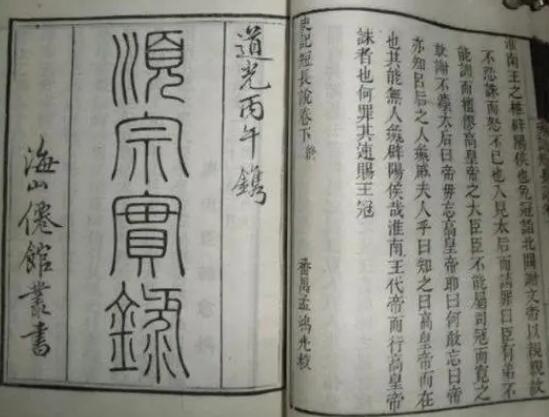 淮南王之椎辟陽侯也免冠詣北闕謝文帝以親親故
不忍誅而怒不已也入見太后而請罪曰臣有弟不
能訓而擅僇高皇帝之大臣臣不能屬司寇而寬之
敢謝不學太后曰帝毋忘高皇帝耶曰何敢忘曰帝
亦知呂后之人彘戚夫人乎曰知之曰高皇帝而在
也其能無人彘辟陽侯哉淮南王代帝而行高皇帝
誅者也何罪其速賜王冠
番禺孟鴻光校
史記短長說卷下終
道光丙午鐫
順宗實錄
海山僊館叢書